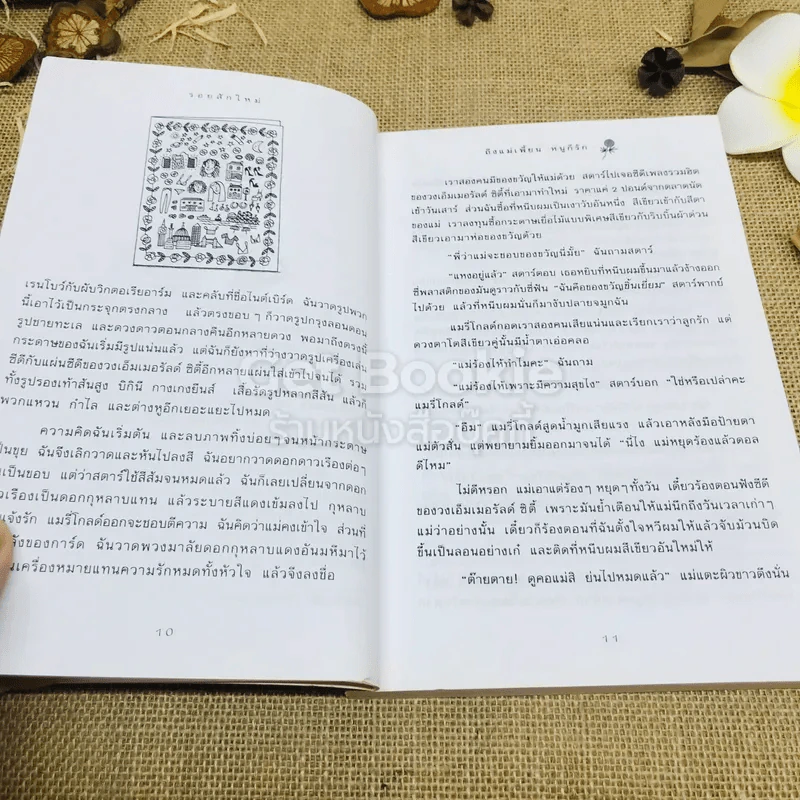 รอยสักใหม่
เรนโบว์กับผับวิกตอเรียอาร์ม และคลับที่ชื่อไนต์เบิร์ด ฉันวาดรูปพวก
นี้เอาไว้เป็นกระจุกตรงกลาง แล้วตรงขอบๆ ก็วาดรูปกรุงลอนดอน
รูปชายทะเล และดวงดาวตอนกลางคืนอีกหลายดวง พอมาถึงตรงนี้
กระดาษของฉันเริ่มมีรูปแน่นแล้ว แต่ฉันก็ยังหาที่ว่างวาดรูปเครื่องเล่น
ซีดีกับแผ่นซีดีของวงเอ็มเมอรัลด์ ซิตี้อีกหลายแผ่นใส่เข้าไปจนได้ รวม
ทั้งรูปรองเท้าส้นสูง บิกินี กางเกงยีนส์ เสื้อรัดรูปหลากสีสัน แล้วก็
พวกแหวน กำไล และต่างหูอีกเยอะแยะไปหมด
ความคิดฉันเริ่มตัน และลบภาพทิ้งบ่อยๆ จนหน้ากระดาษ
เป็นขุย ฉันจึงเลิกวาดและหันไปลงสี ฉันอยากวาดดอกดาวเรืองต่อๆ
เป็นขอบ แต่ว่าสตาร์ใช้สีส้มจนหมดแล้ว ฉันก็เลยเปลี่ยนจากดอก
วเรืองเป็นดอกกุหลาบแทน แล้วระบายสีแดงเข้มลงไป กุหลาบ
แจ้งรัก แมรี่โกลด์ออกจะชอบตีความ ฉันคิดว่าแม่คงเข้าใจ ส่วนที่
ลังของการ์ด ฉันวาดพวงมาลัยดอกกุหลาบแดงอันมหึมาไว้
นเครื่องหมายแทนความรักหมดทั้งหัวใจ แล้วจึงลงชื่อ
10
ถึงแม่เพี้ยน หนูก็รัก
เราสองคนมีของขวัญให้แม่ด้วย สตาร์ไปเจอซีดีเพลงรวมฮิต
ของวงเอ็มเมอรัลด์ ซิตี้ที่เอามาทำใหม่ ราคาแค่ 2 ปอนด์จากตลาดนัด
เช้าวันเสาร์ ส่วนฉันซื้อที่หนีบผมเป็นเงาวับอันหนึ่ง สีเขียวเข้ากับสีตา
ของแม่ เราลงทุนซื้อกระดาษเยื่อไม้แบบพิเศษสีเขียวกับริบบิ้นผ้าต่วน
สีเขียวเอามาห่อของขวัญด้วย
“พี่ว่าแม่จะชอบของขวัญนี่มั้ย” ฉันถามสตาร์
“แหงอยู่แล้ว” สตาร์ตอบ เธอหยิบที่หนีบผมขึ้นมาแล้วง้างออก
ซี่พลาสติกของมันดูราวกับซี่ฟัน “ฉันคือของขวัญชิ้นเยี่ยม” สตาร์พากย์
ไปด้วย แล้วที่หนีบผมนั่นก็มางับปลายจมูกฉัน
แมรี่โกลด์กอดเราสองคนเสียแน่นและเรียกเราว่าลูกรัก แต่
ดวงตาโตสีเขียวคู่นั้นมีน้ำตาเอ่อคลอ
“แม่ร้องไห้ทำไมคะ” ฉันถาม
“แม่ร้องไห้เพราะมีความสุขไง” สตาร์บอก “ใช่หรือเปล่าคะ
แมรี่โกลด์”
“อืม” แมรี่โกลด์สูดน้ำมูกเสียแรง แล้วเอาหลังมือป้ายตา
แม่ตัวสั่น แต่พยายามยิ้มออกมาจนได้ “นี่ไง แม่หยุดร้องแล้วตอล
ดีไหม”
ไม่ดีหรอก แม่เอาแต่ร้องๆ หยุดๆ ทั้งวัน เดี๋ยวร้องตอนฟังซีดี
ของวงเอ็มเมอรัลด์ ซิตี้ เพราะมันย้ำเตือนให้แม่นึกถึงวันเวลาเก่าๆ
แม่ว่าอย่างนั้น เดี๋ยวก็ร้องตอนที่ฉันตั้งใจหวีผมให้แล้วจับม้วนบิด
ขึ้นเป็นลอนอย่างเก๋ และติดที่หนีบผมสีเขียวอันใหม่ให้
“ต๊ายตาย! ดูคอแม่สิ ย่นไปหมดแล้ว” แม่แตะผิวขาวตึงนั่น
11
Get Bookie
ร้านหนังสือบุ๊คกี้